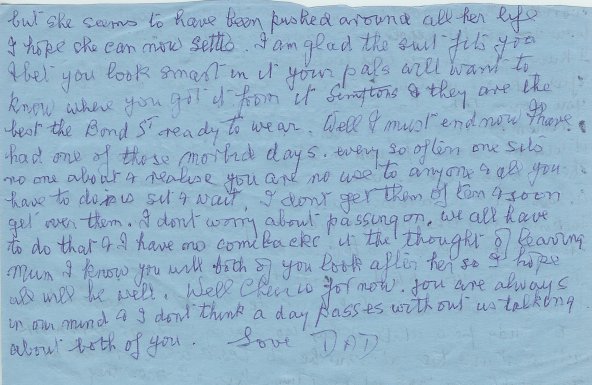 but she seems to have been pushed around all her life
I hope she can now settle. I am glad the suit fits you
I bet you look smart in it your pals will want to
know where you got it from it Simptons & they are the
best the Bond St ready to wear. Well I must end now I have
had one of those morbid days. every so often one sits
no one about & realise you are no use to anyone & all you
have to do is sit & wait. I dont get them often & soon
get over them. I dont worry about passing on. we all have
to do that & I have no comebacks it the thought of leaving
Mum I know you will both of you look after her so I hope
all will be well. Well Cheerio for now. you are always
in our mind & I dont think a day passes without us talking
about both of you. Love DAD